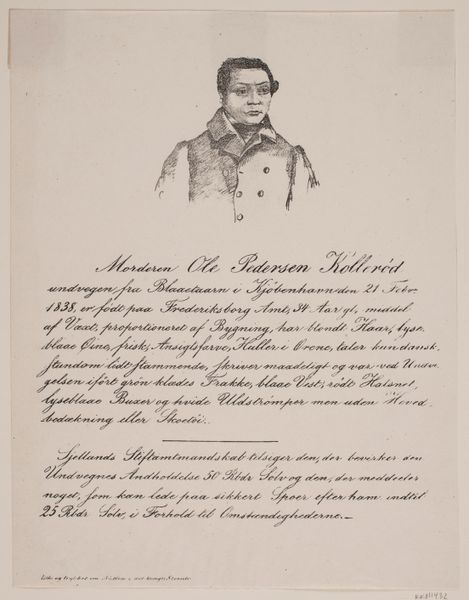 Morderen Ole Pedersen Kollerød
undvegen fra Blaaetaarn i Kjöbenhavn den 21 Febr.
1838, er födt paa Frederiksborg Amt, 34 Aar gl, middel
af Væxt, proportioneret af Bygning, har blondt Haar, lyse-
blaae Öine, frisk Ansigtsfarve, Huller i Ørene, taler kun dansk,
stundom lidt stammende, skriver maadeligt og var ved Undvi-
gelsen iført grön klædes Frakke, blaae Vest, rödt Halsnet,
lyseblaae Buxer og hvide Uldströmper men uden Hoved-
bedækning eller Skoetöi.
Sjellands Stiftamtmandskab tilsiger den, der bevirker den
Undvegnes Andholdelse 50 Rbdr Sölv og den, der meddeeler
noget, som kan lede paa sikkert Spoer efter ham indtil
25 Rbdr Sölv, i Forhold til Omstændighederne.—
Lith. og trykket om Natten i det kongl. Steentr.